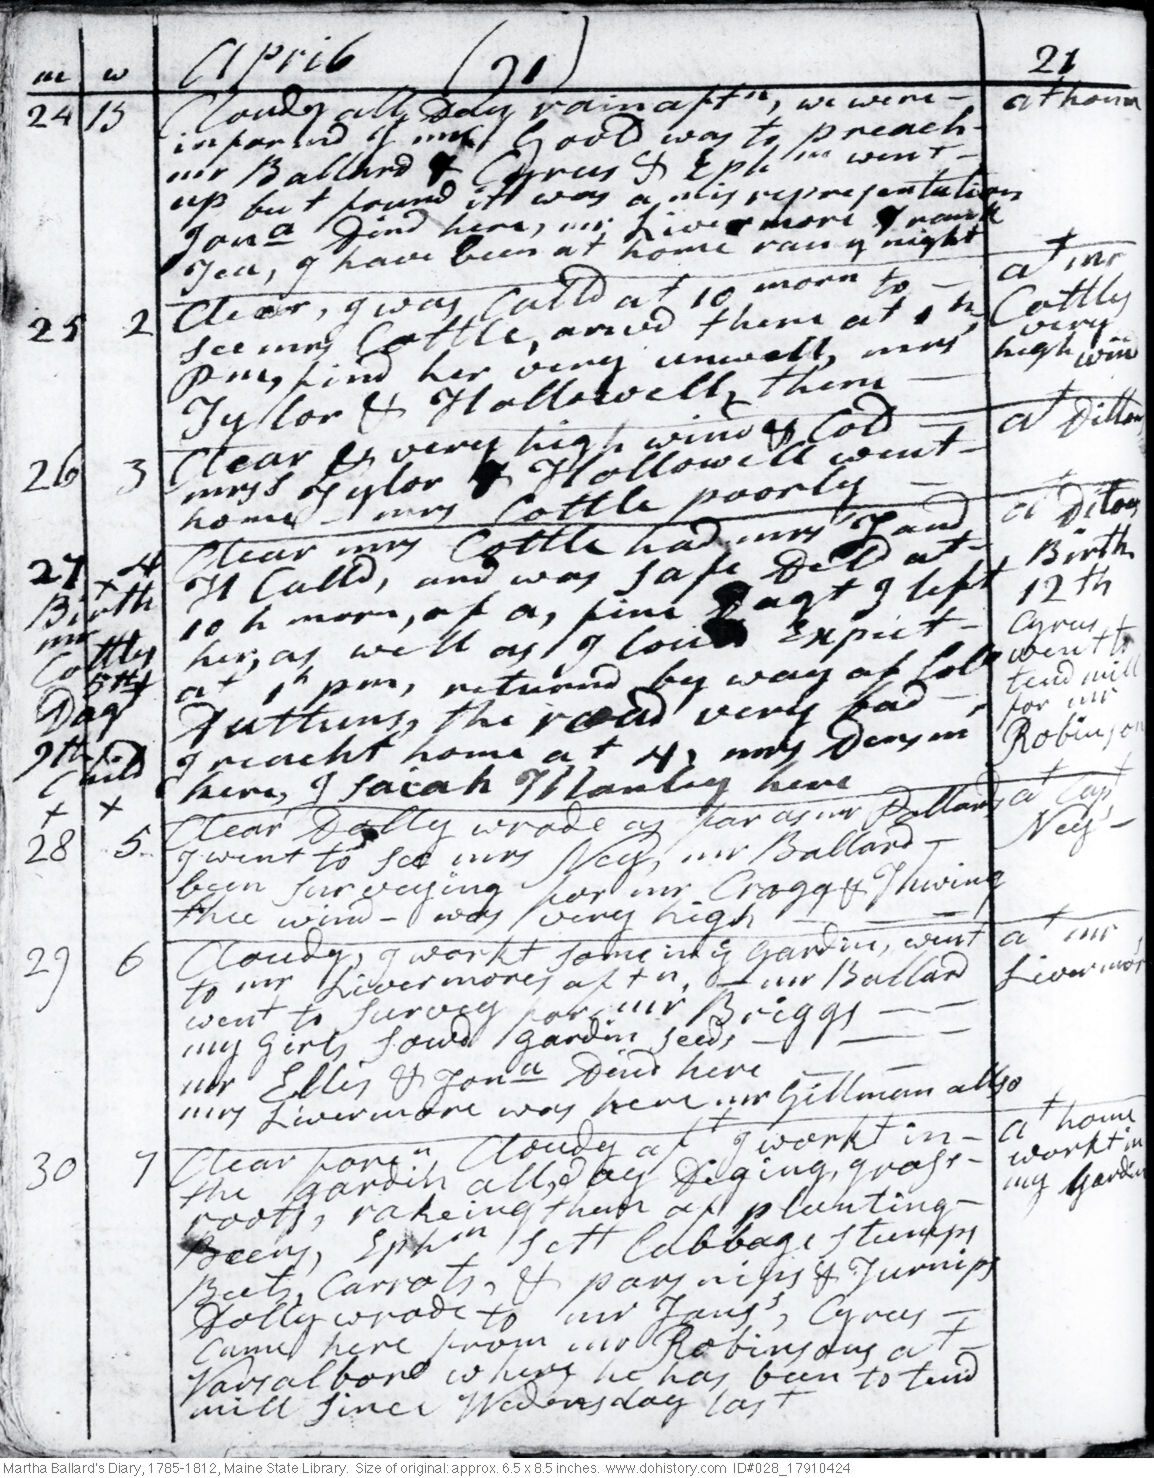 m w April (91) 21
24 1S Cloudy all Day rain aftn, we were - at home
informd yt mr Goold was to preach
mr Ballard & Cyrus & Ephm went -
up but found it was a misrepresentation
Jona Dind here, mr Livermore Drank
Tea, I have been at home rainy night
25 2 Clear, I was Calld at 10 morn to - at mr
see mrs Cottle, arivd there at 1 h Cottles
pm, find her very unwell, mrs very
high wind
Tylor & Hollowell there -
26 3 Clear & very high wind & Cold - at Ditto
mrss Tylor & Hollowell went -
home - mrs Cottle poorly -
27 4 Clear mrs Cottle had mrs T and at Ditos
x
Birth H Calld, and was safe Deld at - Birth
mr 10 h morn, of a, fine Dagt I left 12th
Cottles her, as well as I Could Expect - Cyrus
5th at 1 h pm, returnd by way of Coll went to
Dagt Duttuns, the road very bad - tend mill
9th I reacht home at 4, mrs Densm for mr
Child here, Isaiah Manley here Robinson
x x
28 5 Clear Dolly wrode as far as mr Pollards at Capt
I went to see mrs Ney, mr Ballard - Neys -
been surveying for mr Cragg & Thwing
thee wind - was very high -
29 6 Cloudy, I workt some in my gardin, went at mr
to mr Livermores aftn, - mr Ballard Livermors
went to survey for mr Briggs - -
my girls sowd gardin seeds - - -
mr Ellis & Jona Dind here -
mrs Livermore was here mr Gillman allso
30 7 Clear foren Cloudy aft I workt in - at home
the gardin all Day Diging, grass - workt in
roots, rakeing them of planting - my Garden
Beens, Ephm sett Cabbage stumps
Beets, Carrots, & parsnips & Turnips
Dolly wrode to mr Tanys, Cyrus -
Came here from mr Robinsons at -
Varsalboro where he has been to tend
mill since Wedensday last
Martha Ballard's Diary, 1785-1812, Maine State Library. Size of original: approx. 6.5 x 8.5 inches. www.dohistory.com ID#028_17910424